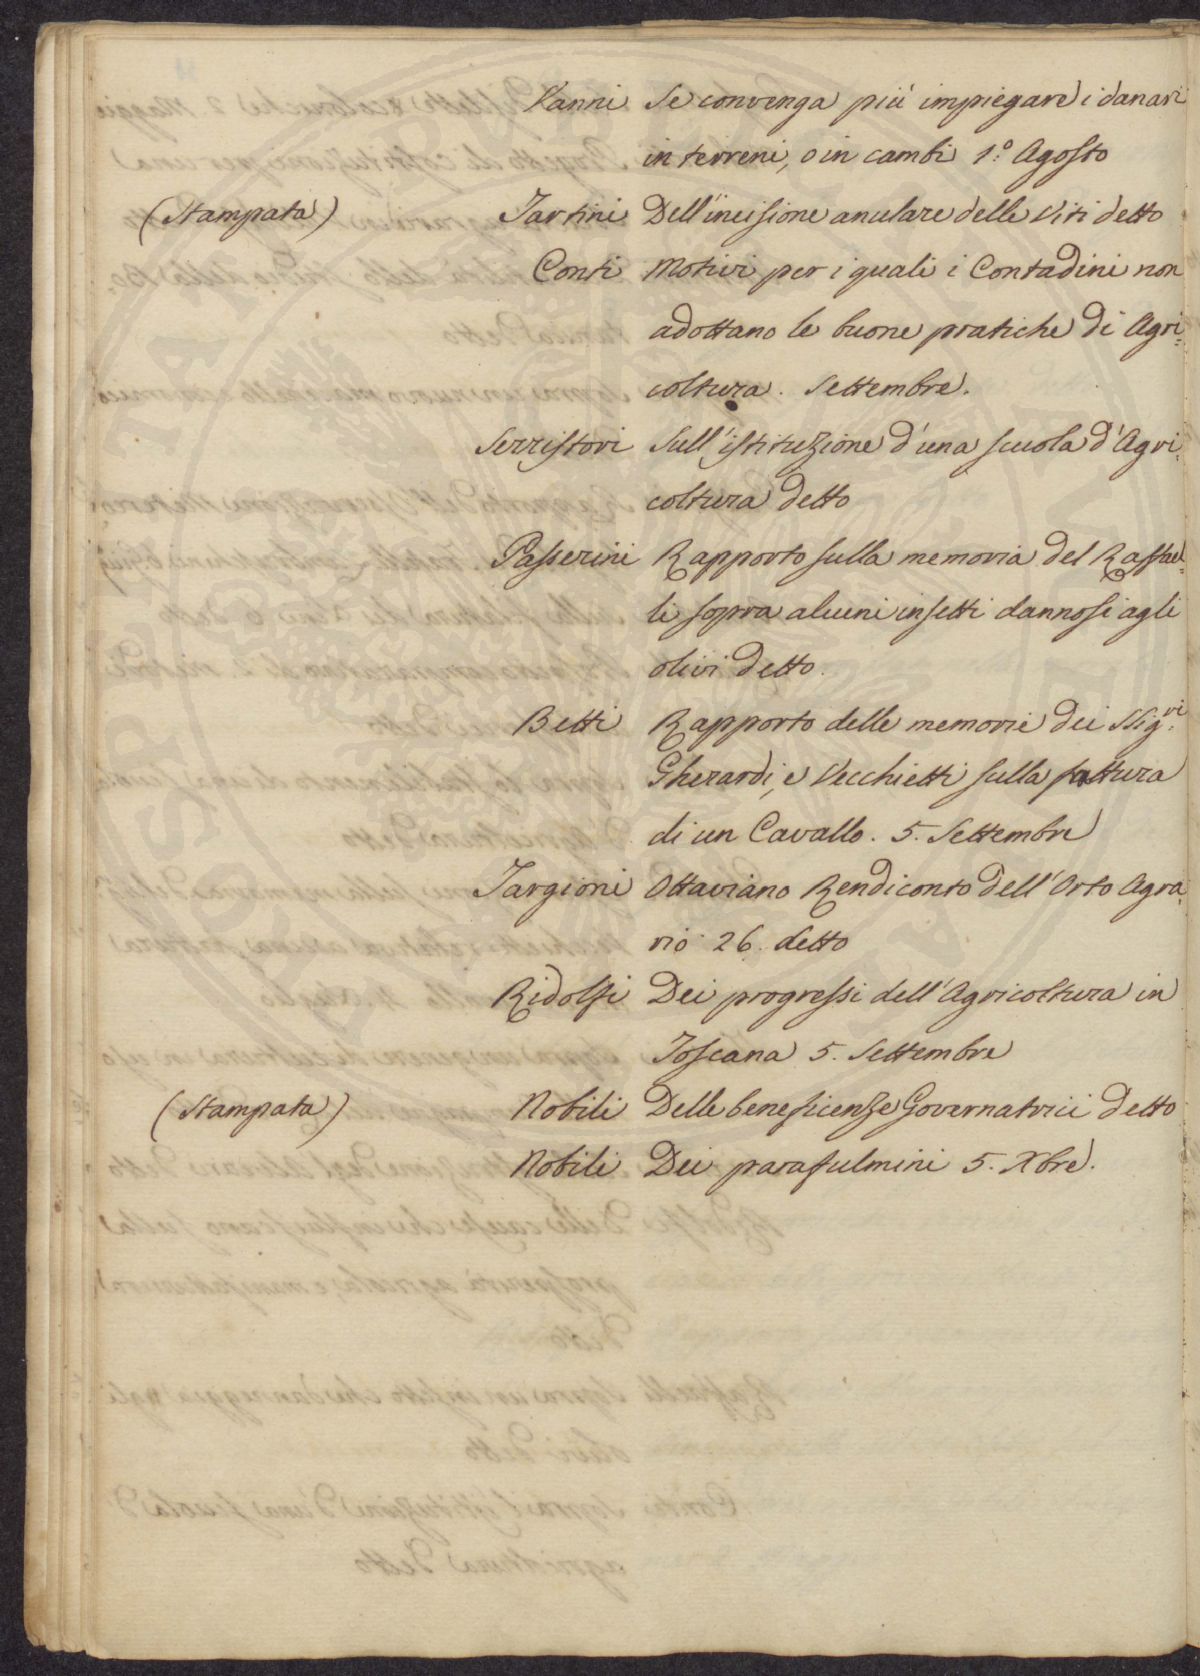 Vanni Se convenga più impiegare i danari
in terreni, o in cambi 1.° Agosto
(Stampata) Tartini Dell'incisione anulare delle Viti detto
Conti Motivi per i quali i Contadini non
adottano le buone pratiche di Agri-
coltura. Settembre.
Serristori Sull'istituzione d'una scuola d'Agri-
coltura detto
Passerini Rapporto sulla memoria del Raffael-
li sopra alcuni insetti dannosi agli
olivi detto.
Betti Rapporto delle memorie dei Sig.ri
Gherardi, e Vecchietti sulla frattura
di un Cavallo. 5. Settembre
Targioni Ottaviano Rendiconto dell'Orto Agra-
rio 26. detto
Ridolfi Dei progressi dell'Agricoltura in
Toscana 5. Settembre
(Stampata) Nobili Delle beneficenze Governatrici detto
Nobili Dei parafulmini 5. Xbre.